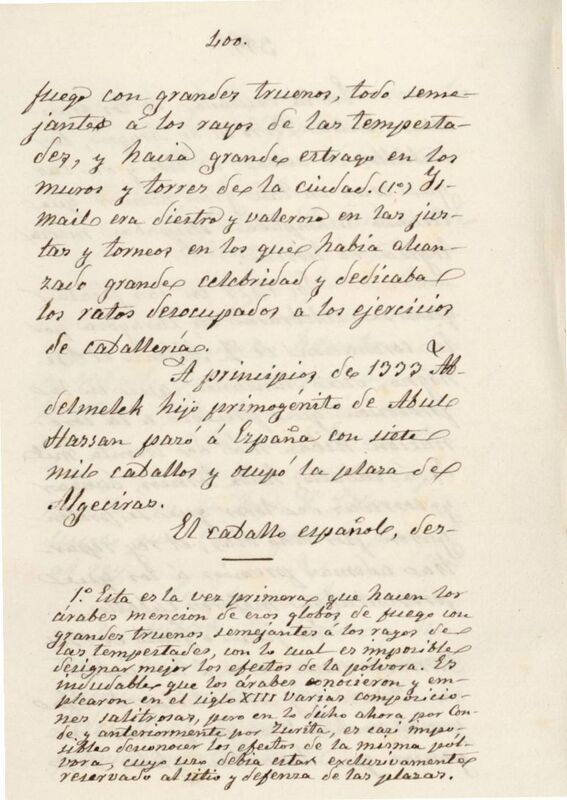 400.
fuego con grandes truenos, todo seme-
jantes á los rayos de las tempesta-
des, y hacia grande estrago en los
muros y torres de la ciudad. (1º) Is-
mail era diestro y valeroso en las jus-
tas y torneos en los que habia alcan-
zado grande celebridad y dedicaba
los ratos desocupados á los ejercicios
de caballería.
A principios de 1333 Ab-
delmelek hijo primogénito de Abul
Hassan pasó á España con siete
mil caballos y ocupó la plaza de
Algeciras.
El caballo español, des-
1.º Esta es la vez primera que hacen los
árabes mencion de esos globos de fuego con
grandes truenos semejantes á los rayos de
las tempestades, con lo cual es imposible
designar mejor los efectos de la pólvora. Es
indudable que los árabes conocieron y em-
plearon en el siglo XIII varias composicio-
nes salitrosas, pero en lo dicho ahora por Con-
de y anteriormente por Zurita, es casi impo-
sible desconocer los efectos de la misma pól-
vora, cuyo uso debia estar exclusivamente
reservado al sitio y defensa de las plazas.